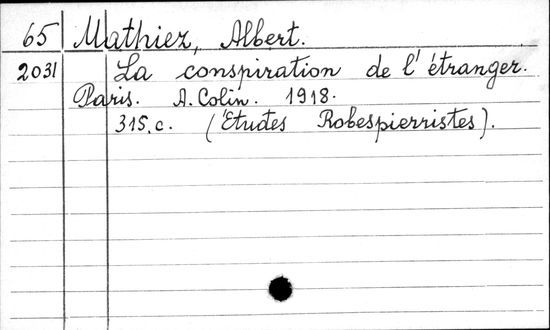 65 Mathiez, Albert.
2031 La conspiration de l'étranger.
Paris. A. Colin. 1918.
315.c. (Études Robespierristes).